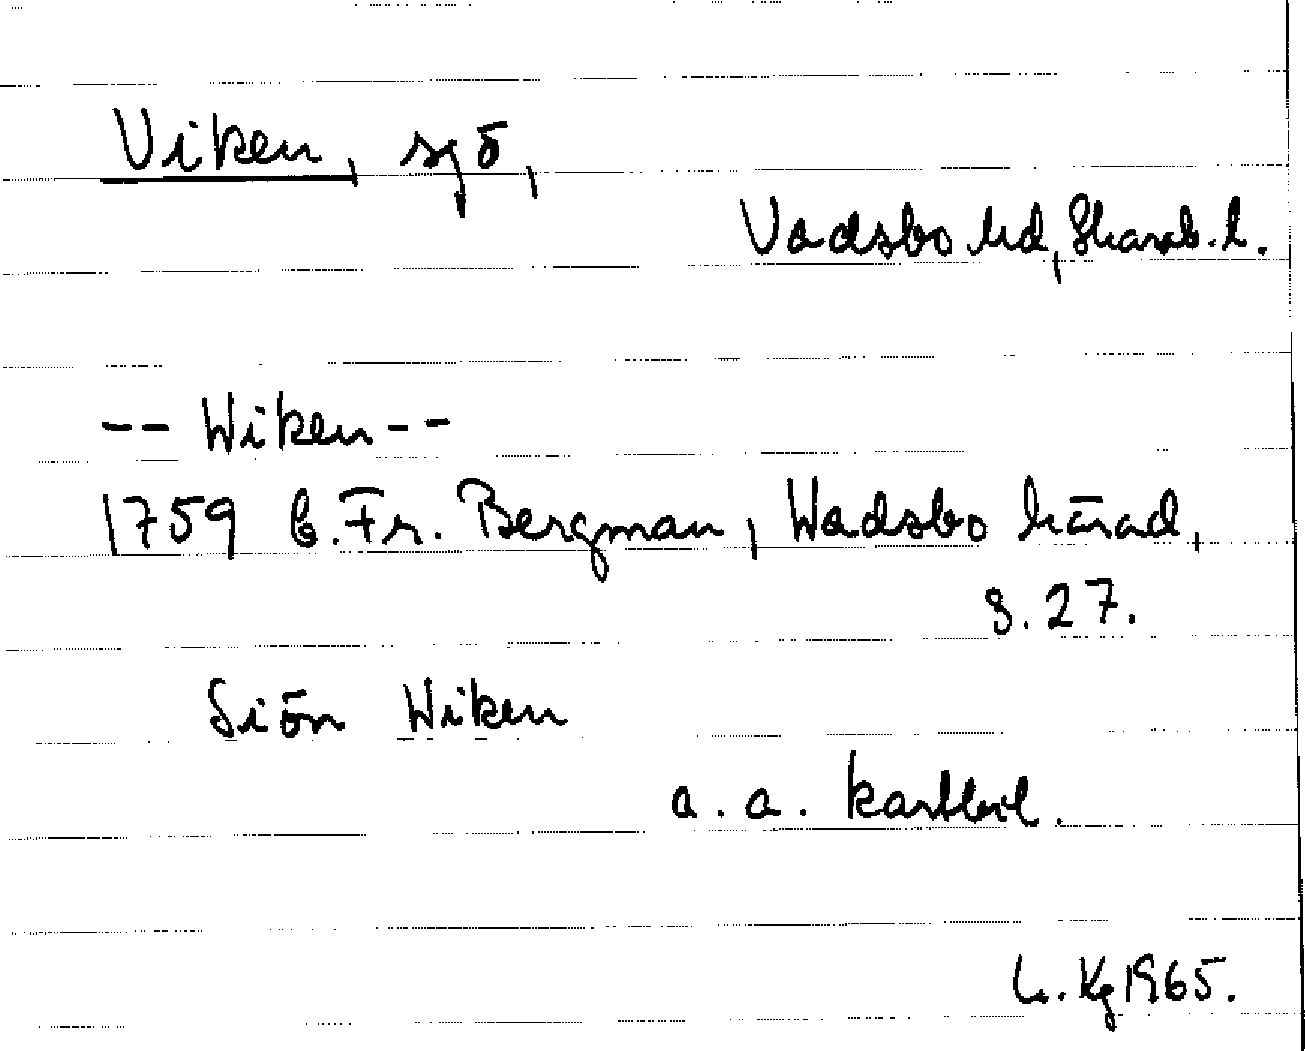 Viken, sjö,
Vadsbo hd, Skarab. l.
-- Wiken --
1759 C. Fr. Bergman, Wadsbo härad,
s. 27.
Siön Wiken
a. a. kartbil.
L. Kg 1965.